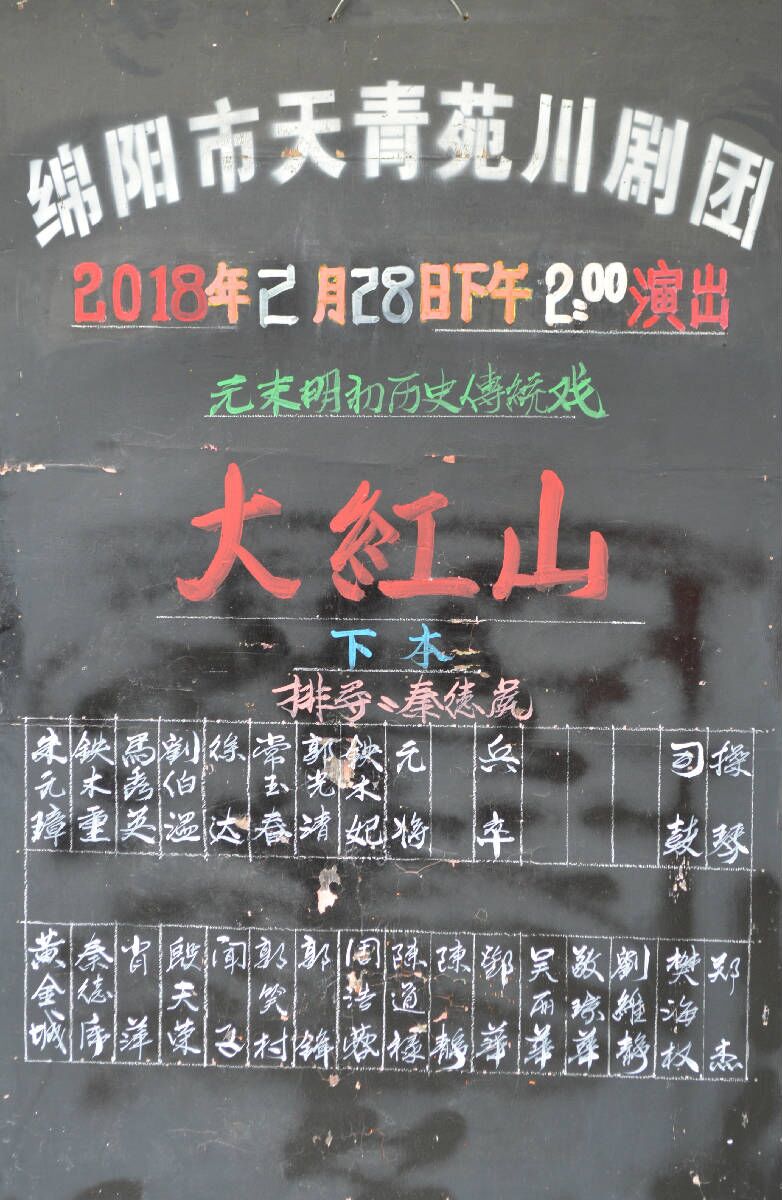 绵阳市天青苑川剧团
2018年2月28日下午2:00演出
元末明初历史傳統戏
大紅山
下本
排导:秦德虎
朱元璋 鉄木重 馬秀英 劉伯温 徐达 常玉春 郭光清 鉄木妃 元将 兵卒 司鼓 操琴
黄金城 秦德虎 肖萍 殷天荣 闻 郭笑村 郭锋 周浩蓉 陈道禄 陳静 鄧華 吴丽華 敬琼華 劉維静 樊海权 郑杰